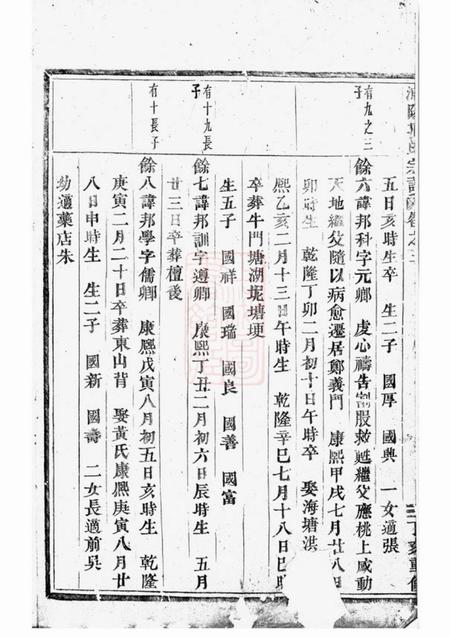 宗譜卷之三
五日亥時生卒 生二子 國厚 國興 一女適張
有九之三子
餘六諱邦科字元卿 虔心禱告割股救甦繼父應桃上感動
天地繼父隨以病愈遷居鄭義門 康熙甲戌七月廿八日
卯時生 乾隆丁卯二月初十日午時卒 娶海塘洪
熙乙亥二月十三日午時生 乾隆辛巳七月十八日巳時
卒葬牛門塘湖坭塘埂
生五子 國祥 國瑞 國良 國善 國富
有十九長子
餘七諱邦訓字遵卿 康熙丁丑二月初六日辰時生 五月
廿三日卒葬檀後
有十長子
餘八諱邦學字儒卿 康熙戊寅八月初五日亥時生 乾隆
庚寅二月二十日卒葬東山背 娶黃氏康熙庚寅八月廿
八日申時生 生二子 國新 國壽 二女長適前吳
幼適藥店朱
丁亥重修